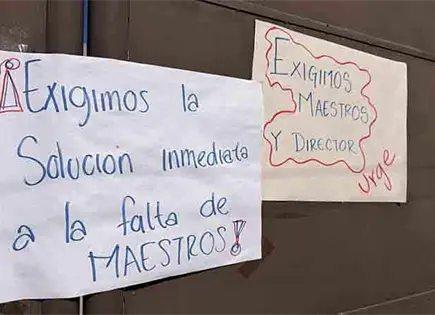 ¡Exigimos la
Solución inmediata
a la falta de
MAESTROS!
EXIGIMOS
MAESTROS
Y DIRECTOR
urge